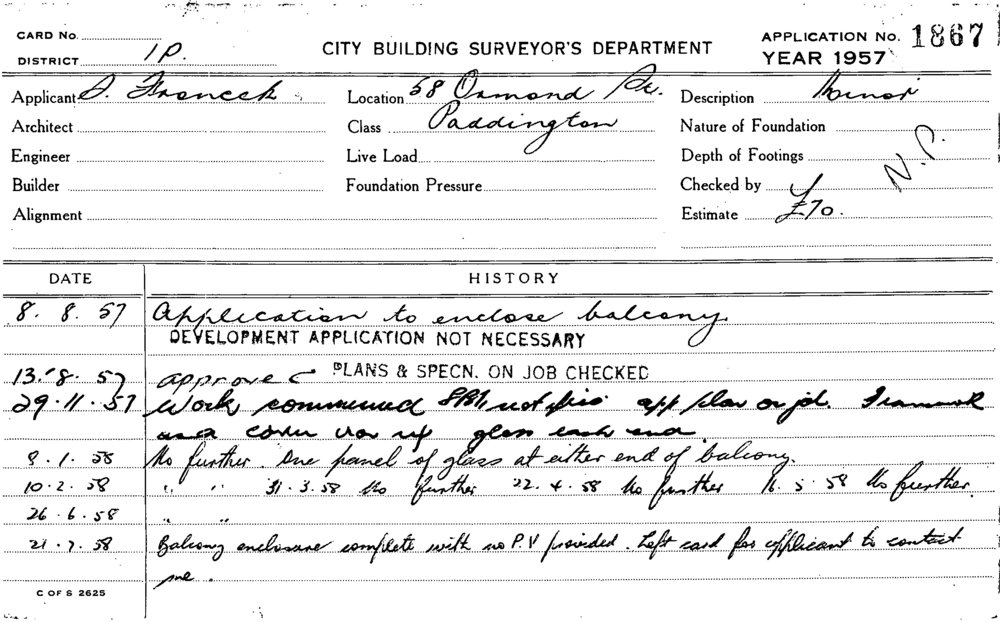 CARD No.
DISTRICT 1P.
CITY BUILDING SURVEYOR'S DEPARTMENT
APPLICATION No. 1867
YEAR 1957
Applicant
Location 58 Ormond St.
Description Minor
Architect
Class Paddington
Nature of Foundation
Engineer
Live Load
Depth of Footings
N.P.
Builder
Foundation Pressure
Checked by
Alignment
Estimate £70.
DATE HISTORY
8. 8. 57 Application to enclose balcony.
DEVELOPMENT APPLICATION NOT NECESSARY
13. 8. 57 approved PLANS & SPECN. ON JOB CHECKED
29.11.57 Work commenced app plan on job. Framework
up glass each end.
8.1.58 No further. One panel of glass at either end of balcony.
10.2.58 " " 31.3.58 No further 22.4.58 No further 16.5.58 No further.
26.6.58 " "
21.7.58 Balcony enclosure complete with no P.V provided. Left card for applicant to contact
me.
C OF S 2625